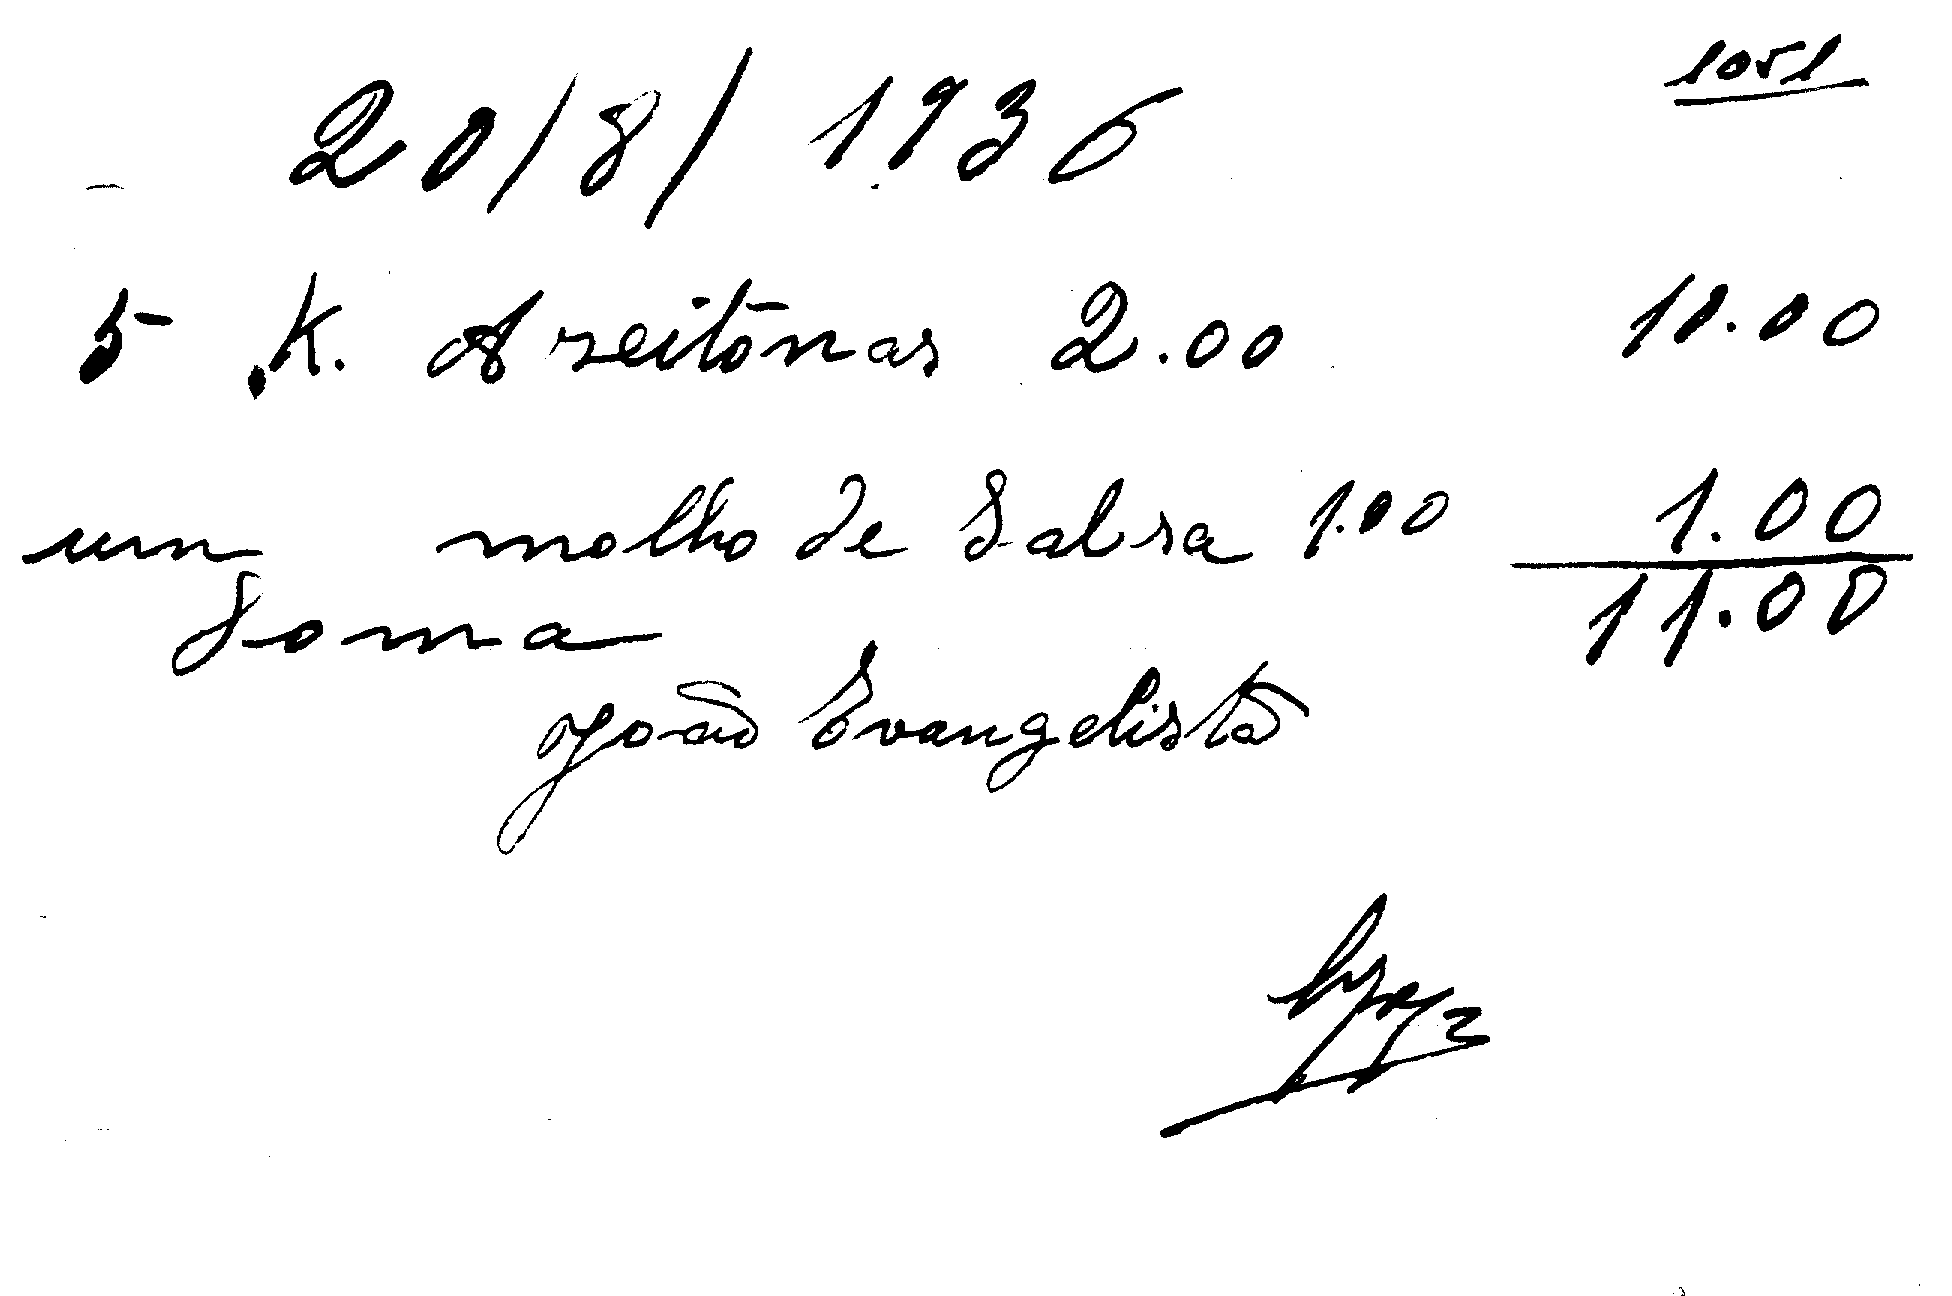 1051
20/8/1936
5 K. Azeitonas 2.00 10.00
um molho de Salsa 1.00 1.00
Soma 11.00
João Evangelista